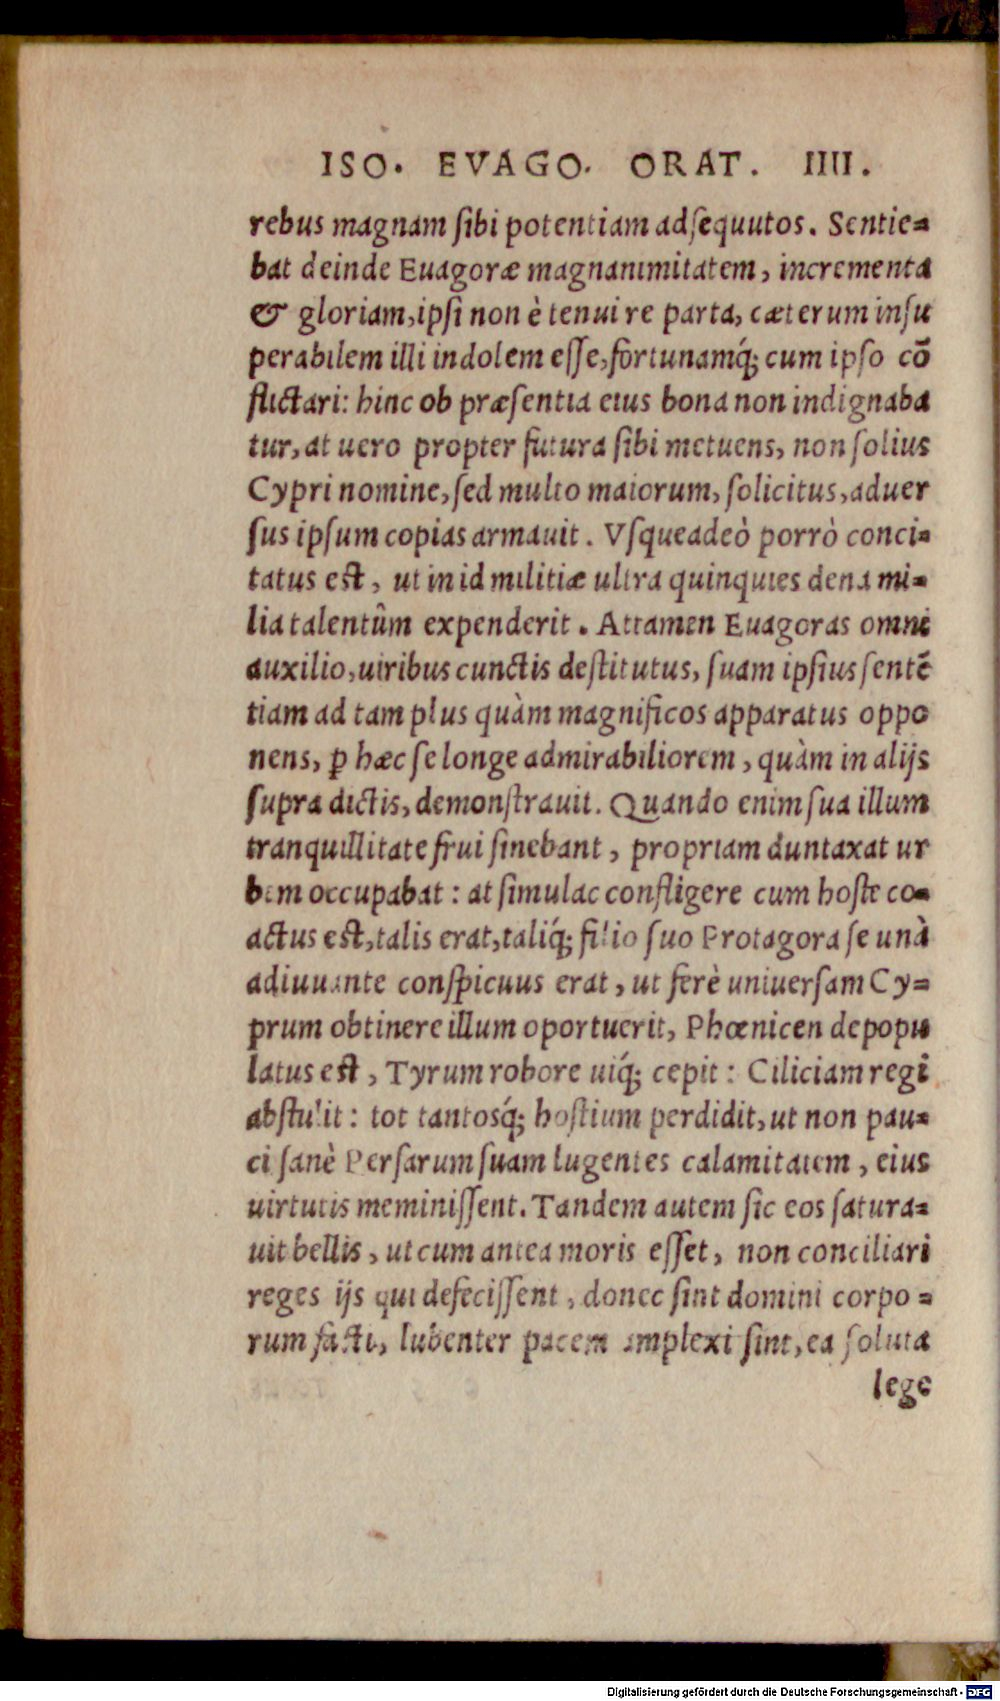 ISO. EVAGO. ORAT. IIII.
rebus magnam sibi potentiam adsequutos. Sentie=
bat deinde Euagoræ magnanimitatem, incrementa
& gloriam, ipsi non è tenui re parta, cæterum insu
perabilem illi indolem esse, fortunamq́; cum ipso cō
flictari: hinc ob præsentia eius bona non indignaba
tur, at uero propter futura sibi metuens, non solius
Cypri nomine, sed multo maiorum, solicitus, aduer
sus ipsum copias armauit. Vsqueadeò porrò conci=
tatus est, ut in id militiæ ultra quinquies dena mi=
lia talentûm expenderit. Attamen Euagoras omni
auxilio, uiribus cunctis destitutus, suam ipsius sentē
tiam ad tam plus quàm magnificos apparatus oppo
nens, ꝑ hæc se longe admirabiliorem, quàm in alijs
supra dictis, demonstrauit. Quando enim sua illum
tranquillitate frui sinebant, propriam duntaxat ur
bem occupabat: at simulac confligere cum hoste co=
actus est, talis erat, taliq́; filio suo Protagora se unà
adiuuante conspicuus erat, ut ferè uniuersam Cy=
prum obtinere illum oportuerit, Phœnicen depopu
latus est, Tyrum robore uiq́; cepit: Ciliciam regi
abstulit: tot tantosq́; hostium perdidit, ut non pau=
ci sanè Persarum suam lugentes calamitatem, eius
uirtutis meminissent. Tandem autem sic eos satura=
uit bellis, ut cum antea moris esset, non conciliari
reges ijs qui defecissent, donec sint domini corpo=
rum facti, lubenter pacem amplexi sint, ea soluta
lege
Digitalisierung gefördert durch die Deutsche Forschungsgemeinschaft - DFG